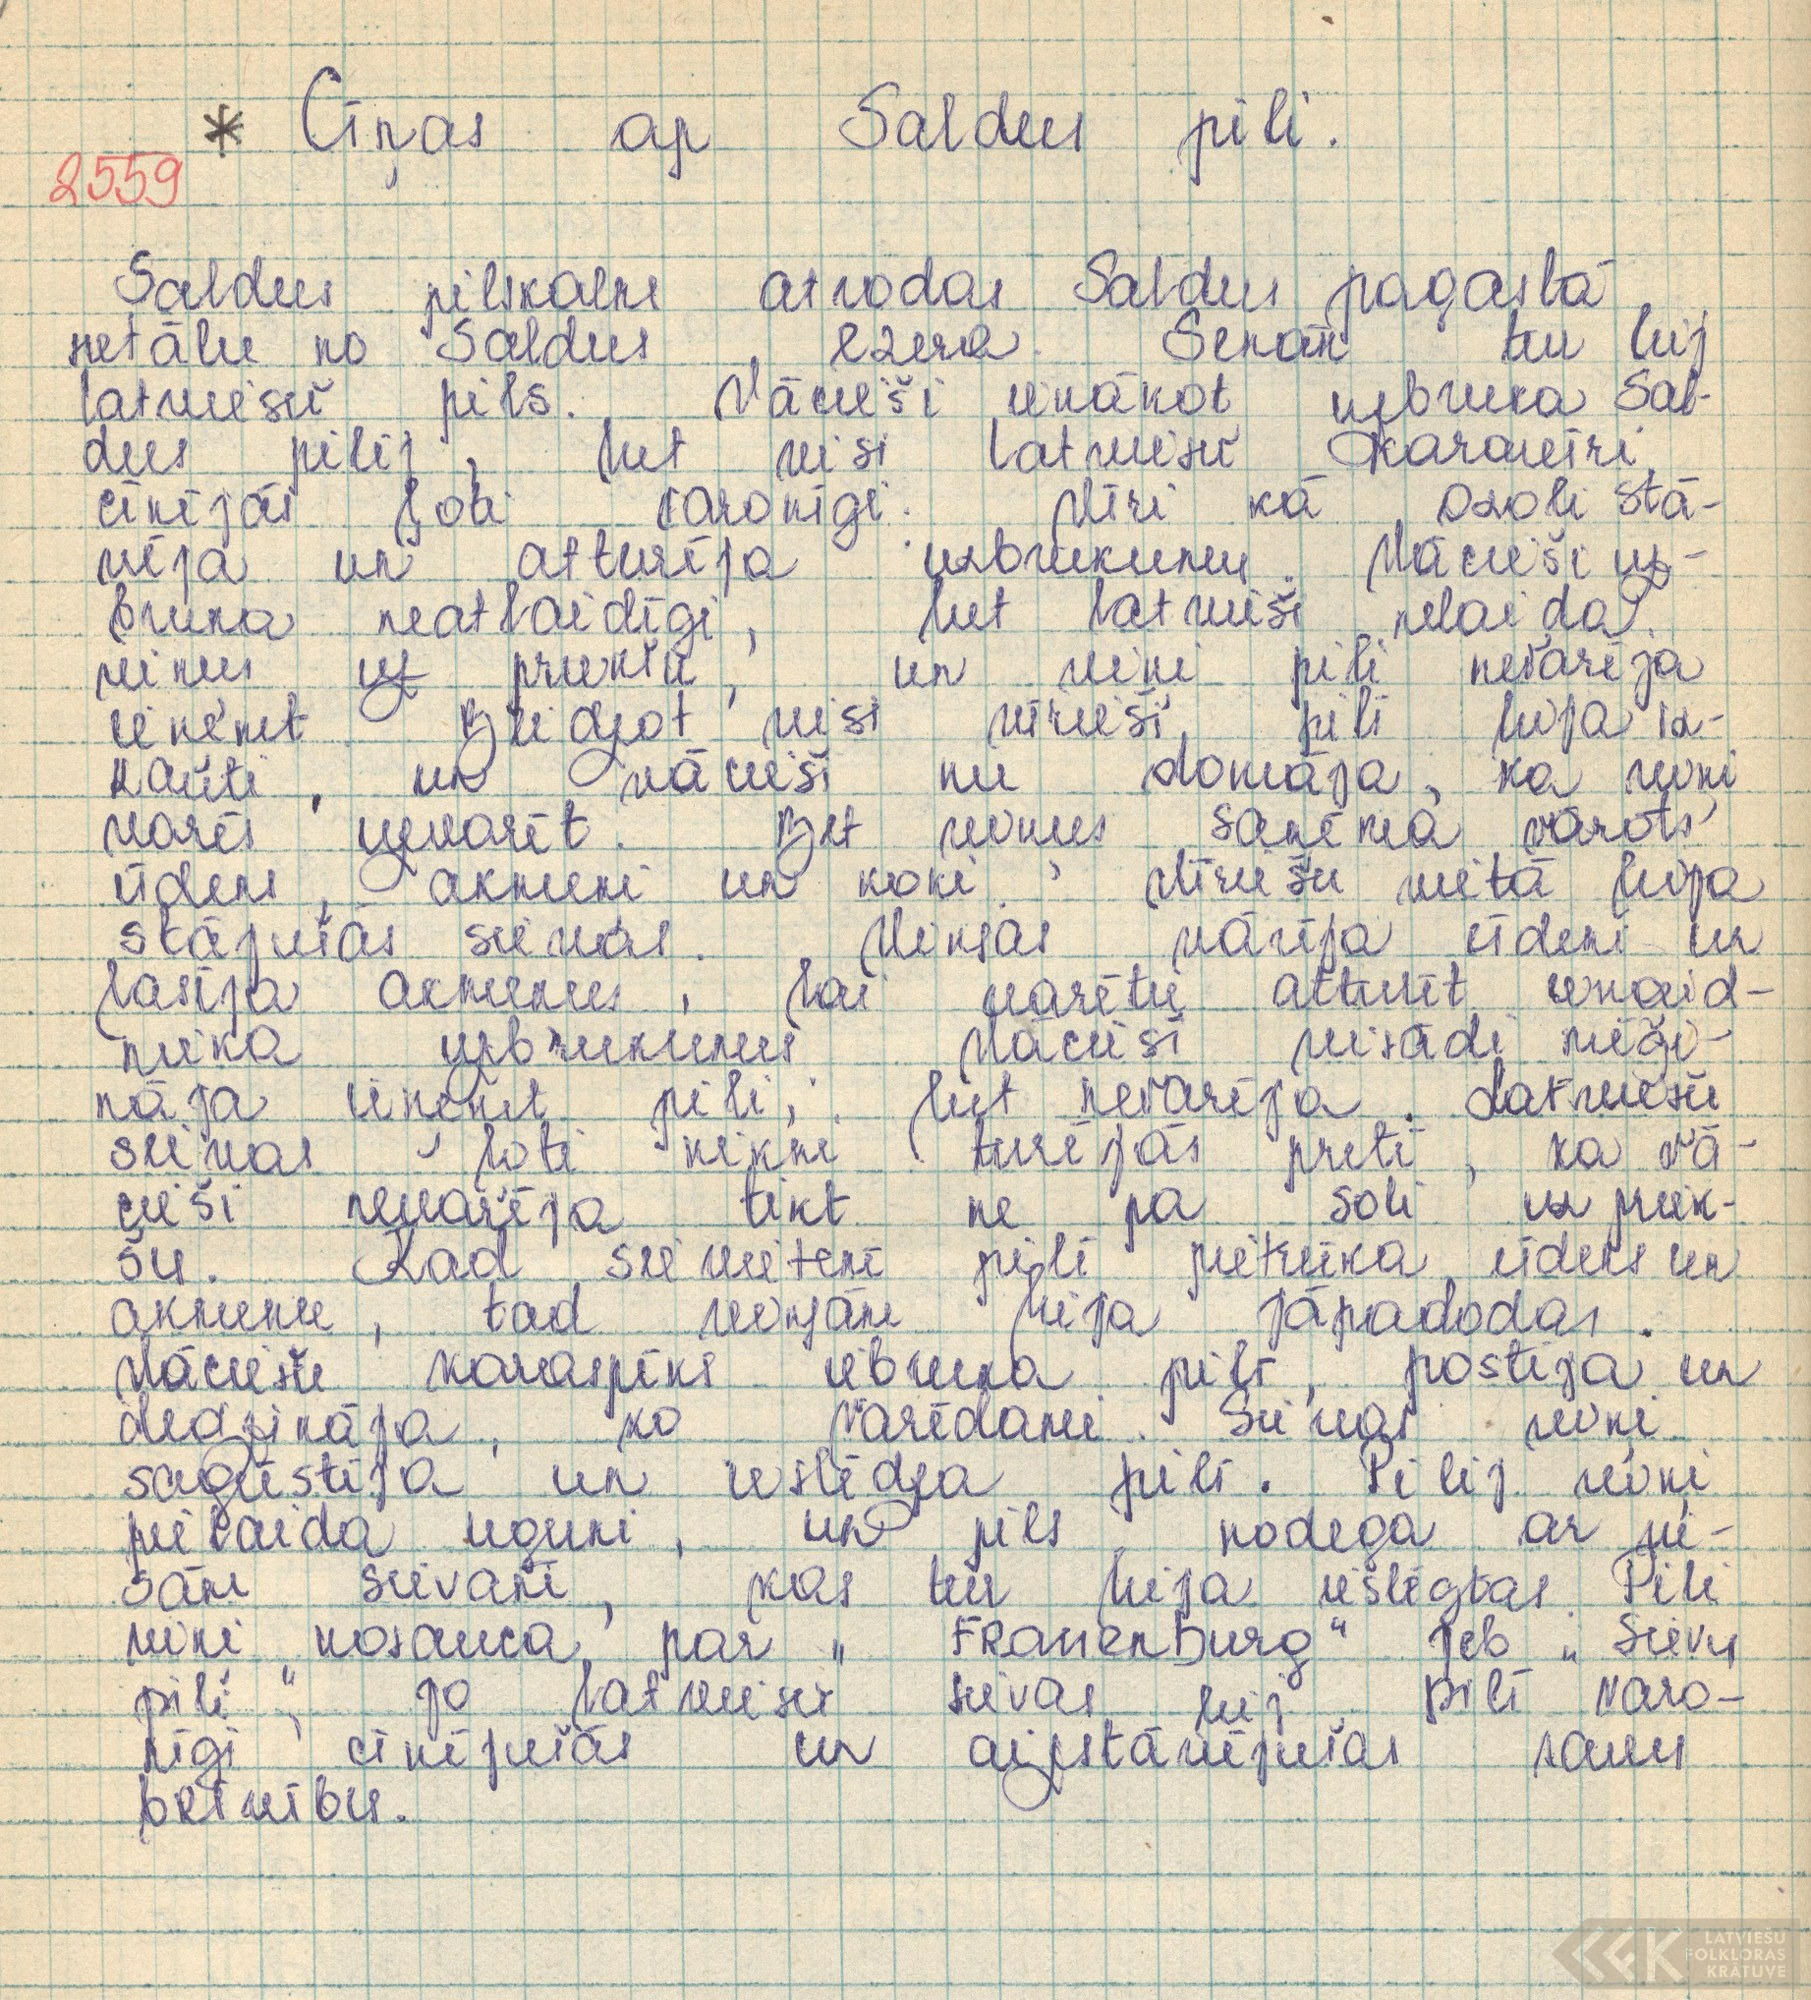 * Cīņas ap Saldus pili.
2559
Saldus pilskalns atrodas Saldus pagastā
netālu no Saldus ezera. Senāk tur bij
latviešu pils. Vācieši ienākot uzbruka Sal-
dus pilij, bet visi latviešu karavīri
cīnījās ļoti varonīgi. Vīri kā ozoli stā-
vēja un atturēja uzbrukumu. Vācieši uz-
bruka neatlaidīgi, bet latvieši nelaida
viņus uz priekšu, un viņi pili nevarēja
ieņemt. Beidzot visi vīrieši pilī bija iz-
kauti, un vācieši nu domāja, ka viņi
varēs uzvarēt. Bet viņus saņēma vārots
ūdens, akmeņi un koki. Vīriešu vietā bija
stājušās sievas. Viņas vārīja ūdeni un
lasīja akmeņus, lai varētu atturēt ienaid-
nieka uzbrukumus. Vācieši visādi mēģi-
nāja ieņemt pili, bet nevarēja. Latviešu
sievas ļoti nikni turējās pretī, ka vā-
cieši nevarēja tikt ne pa soli uz priek-
šu. Kad sievietēm pilī pietrūka ūdens un
akmeņu, tad viņām bija jāpadodas.
Vāciešu karaspēks iebruka pilī, postīja un
dedzināja, ko varēdami. Sievas viņi
sagūstīja un ieslēdza pilī. Pilij viņi
pielaida uguni, un pils nodega ar vi-
sām sievām, kas tur bija ieslēgtas. Pili
viņi nosauca par „Frauenburg" jeb „Sievu
pili", jo latviešu sievas bij pilī varo-
nīgi cīnījušās un aizstāvējušas savu
brīvību.
LATVIEŠU
FOLKLORAS
KRĀTUVE